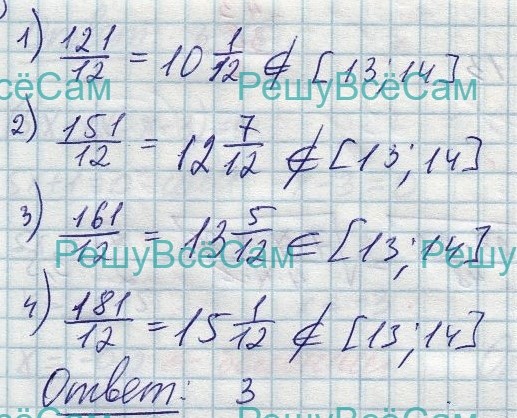 1) 121/12 = 10 1/12 ∉ [13; 14]
сёСам РешуВсёСам
2) 151/12 = 12 7/12 ∉ [13; 14]
3) 161/12 = 13 5/12 ∈ [13; 14]
РешуВсёСам РешуВсё
4) 181/12 = 15 1/12 ∉ [13; 14]
Ответ: 3
РешуВсёСам